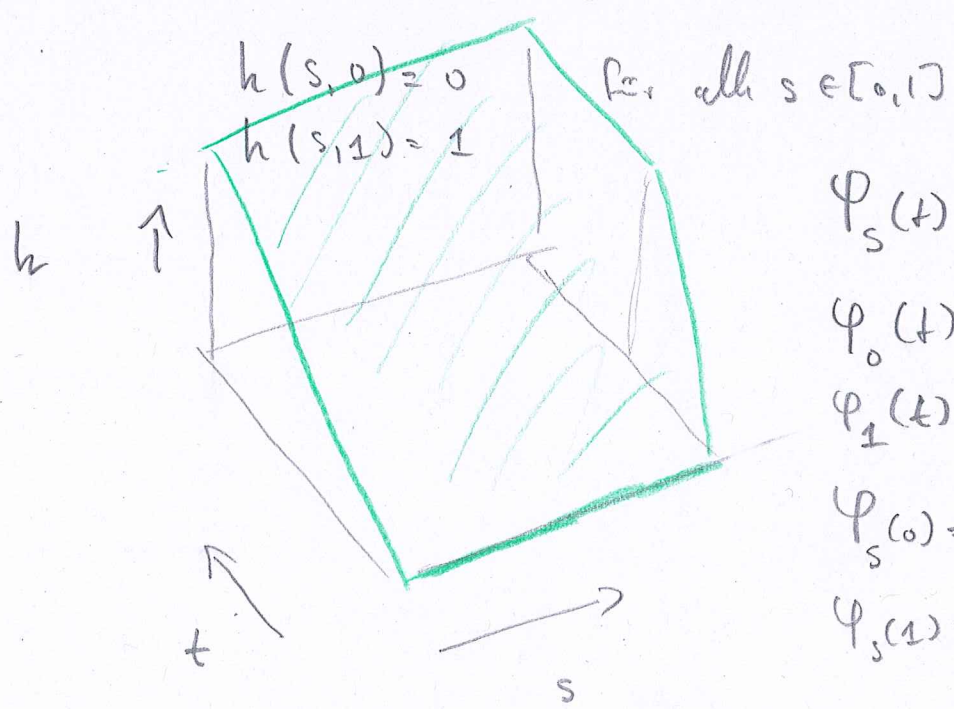 h(s,0) = 0 für alle s ∈ [0,1]
h(s,1) = 1
φ_s(t)
h ↑
φ_0(t)
φ_1(t)
φ_s(0) =
φ_s(1)
t
s